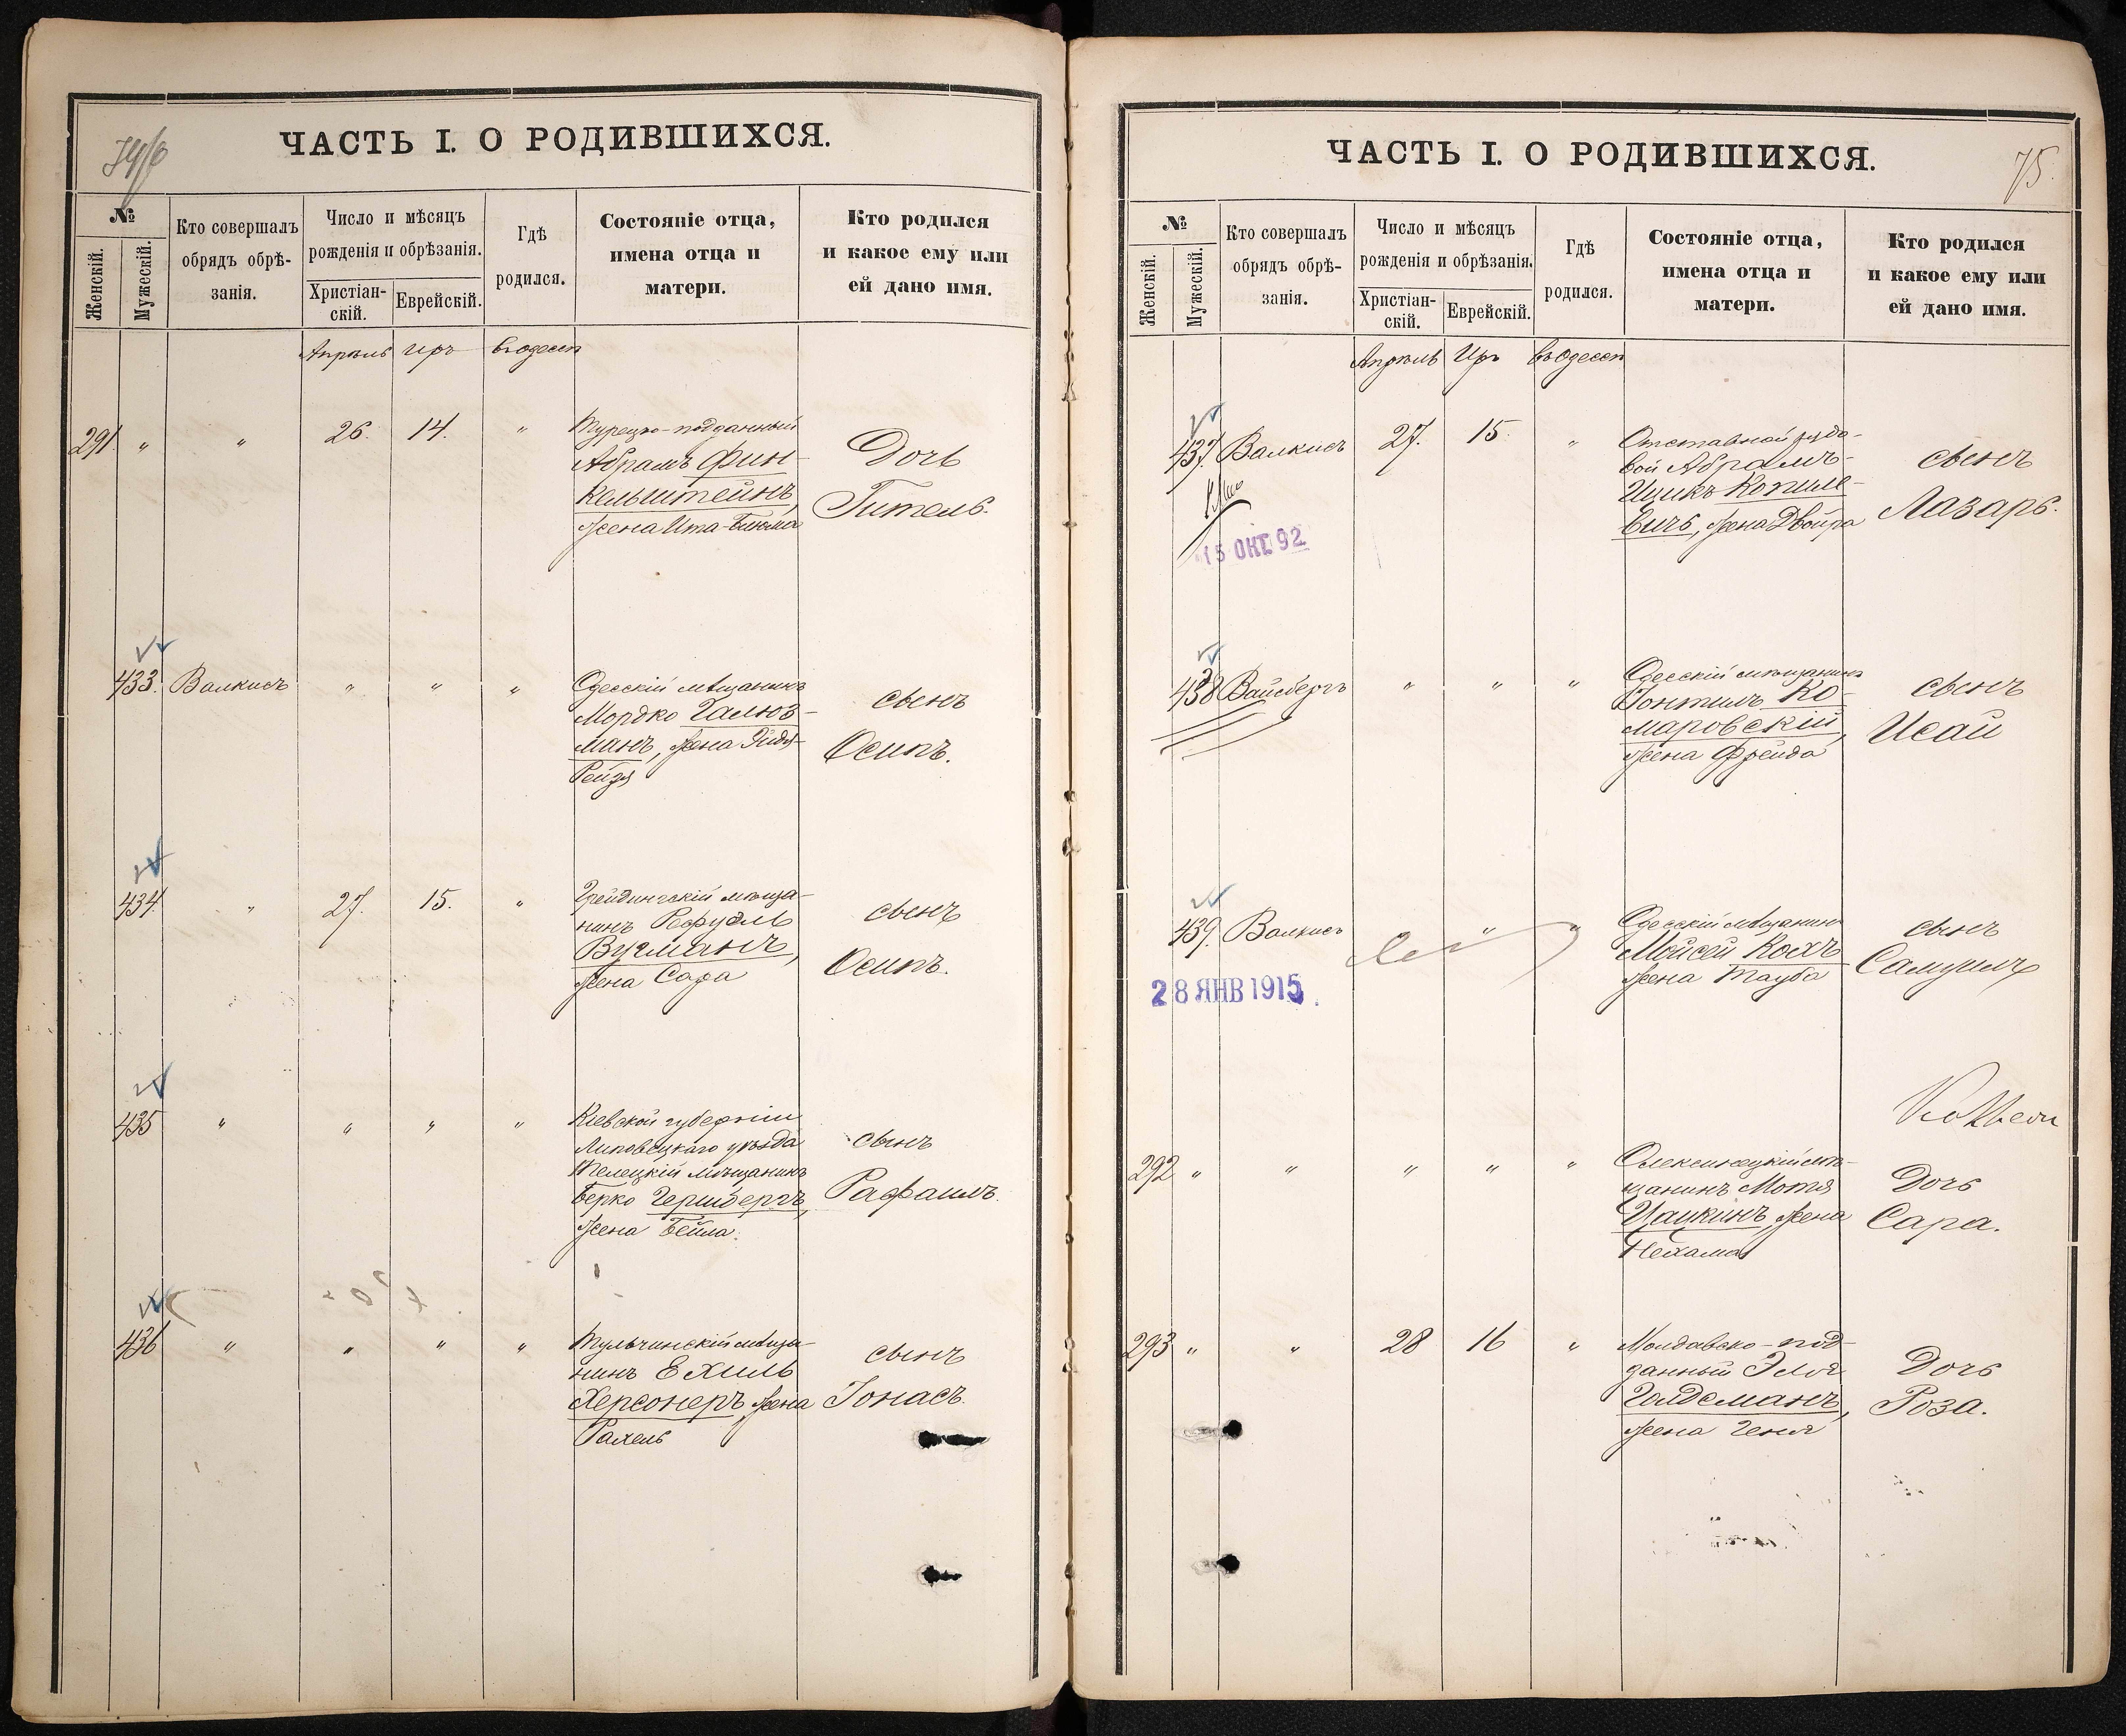 ЧАСТЬ I. О РОДИВШИХСЯ.
№
Женскій.
Мужескій.
Кто совершалъ
обрядъ обрѣ-
занія.
Число и мѣсяцъ
рожденія и обрѣзанія.
Христіан-
скій.
Еврейскій.
Гдѣ
родился.
Состояніе отца,
имена отца и
матери.
Кто родился
и какое ему или
ей дано имя.
Апрѣль Иръ въ Одессѣ
291. " " 26. 14. "
Турецко-подданный
Абрамъ Фин-
кельштейнъ,
жена Ита-Блюма
Дочь
Гитель.
433. Валкисъ " " "
Одесскій мѣщанинъ
Мордко Галюз-
манъ, жена
Рейзя
сынъ
Осипъ.
434. " 27. 15. "
мѣща-
нинъ Рафуэль
Вугманъ,
жена Сара
сынъ
Осипъ.
435 " " " "
Кіевской губерніи
Липовецкаго уѣзда
мѣщанинъ
Берко Гершбергъ,
жена Бейла.
сынъ
Рафаилъ.
436 " " " "
Тульчинскій мѣща-
нинъ Ехиль
Херсонеръ, жена
Рахель
сынъ
Іонасъ.
ЧАСТЬ I. О РОДИВШИХСЯ.
75.
№
Женскій.
Мужескій.
Кто совершалъ
обрядъ обрѣ-
занія.
Число и мѣсяцъ
рожденія и обрѣзанія.
Христіан-
скій.
Еврейскій.
Гдѣ
родился.
Состояніе отца,
имена отца и
матери.
Кто родился
и какое ему или
ей дано имя.
Апрѣль Иръ въ Одессѣ
437. Валкисъ 27. 15. "
15 ОКТ 92
Отставной рядо-
вой Абрамъ-
Ицикъ Копиле-
вичъ, жена Двойра
сынъ
Лазарь.
438 Вайсбергъ " " "
Одесскій мѣщанинъ
Іонтиль Ко-
маровскій,
жена Фрейда
сынъ
Исай
439. Валкисъ " "
28 ЯНВ 1915.
Одесскій мѣщанинъ
Мойсей Кохъ
жена Тауба
сынъ
Самуилъ
292 " " " " "
мѣ-
щанинъ Мотя
Цацкинъ, жена
Нехама
Дочь
Сара.
293 " " 28 16 "
Молдавско-под-
данный Эля
Голдсманъ,
жена Геня
Дочь
Роза.